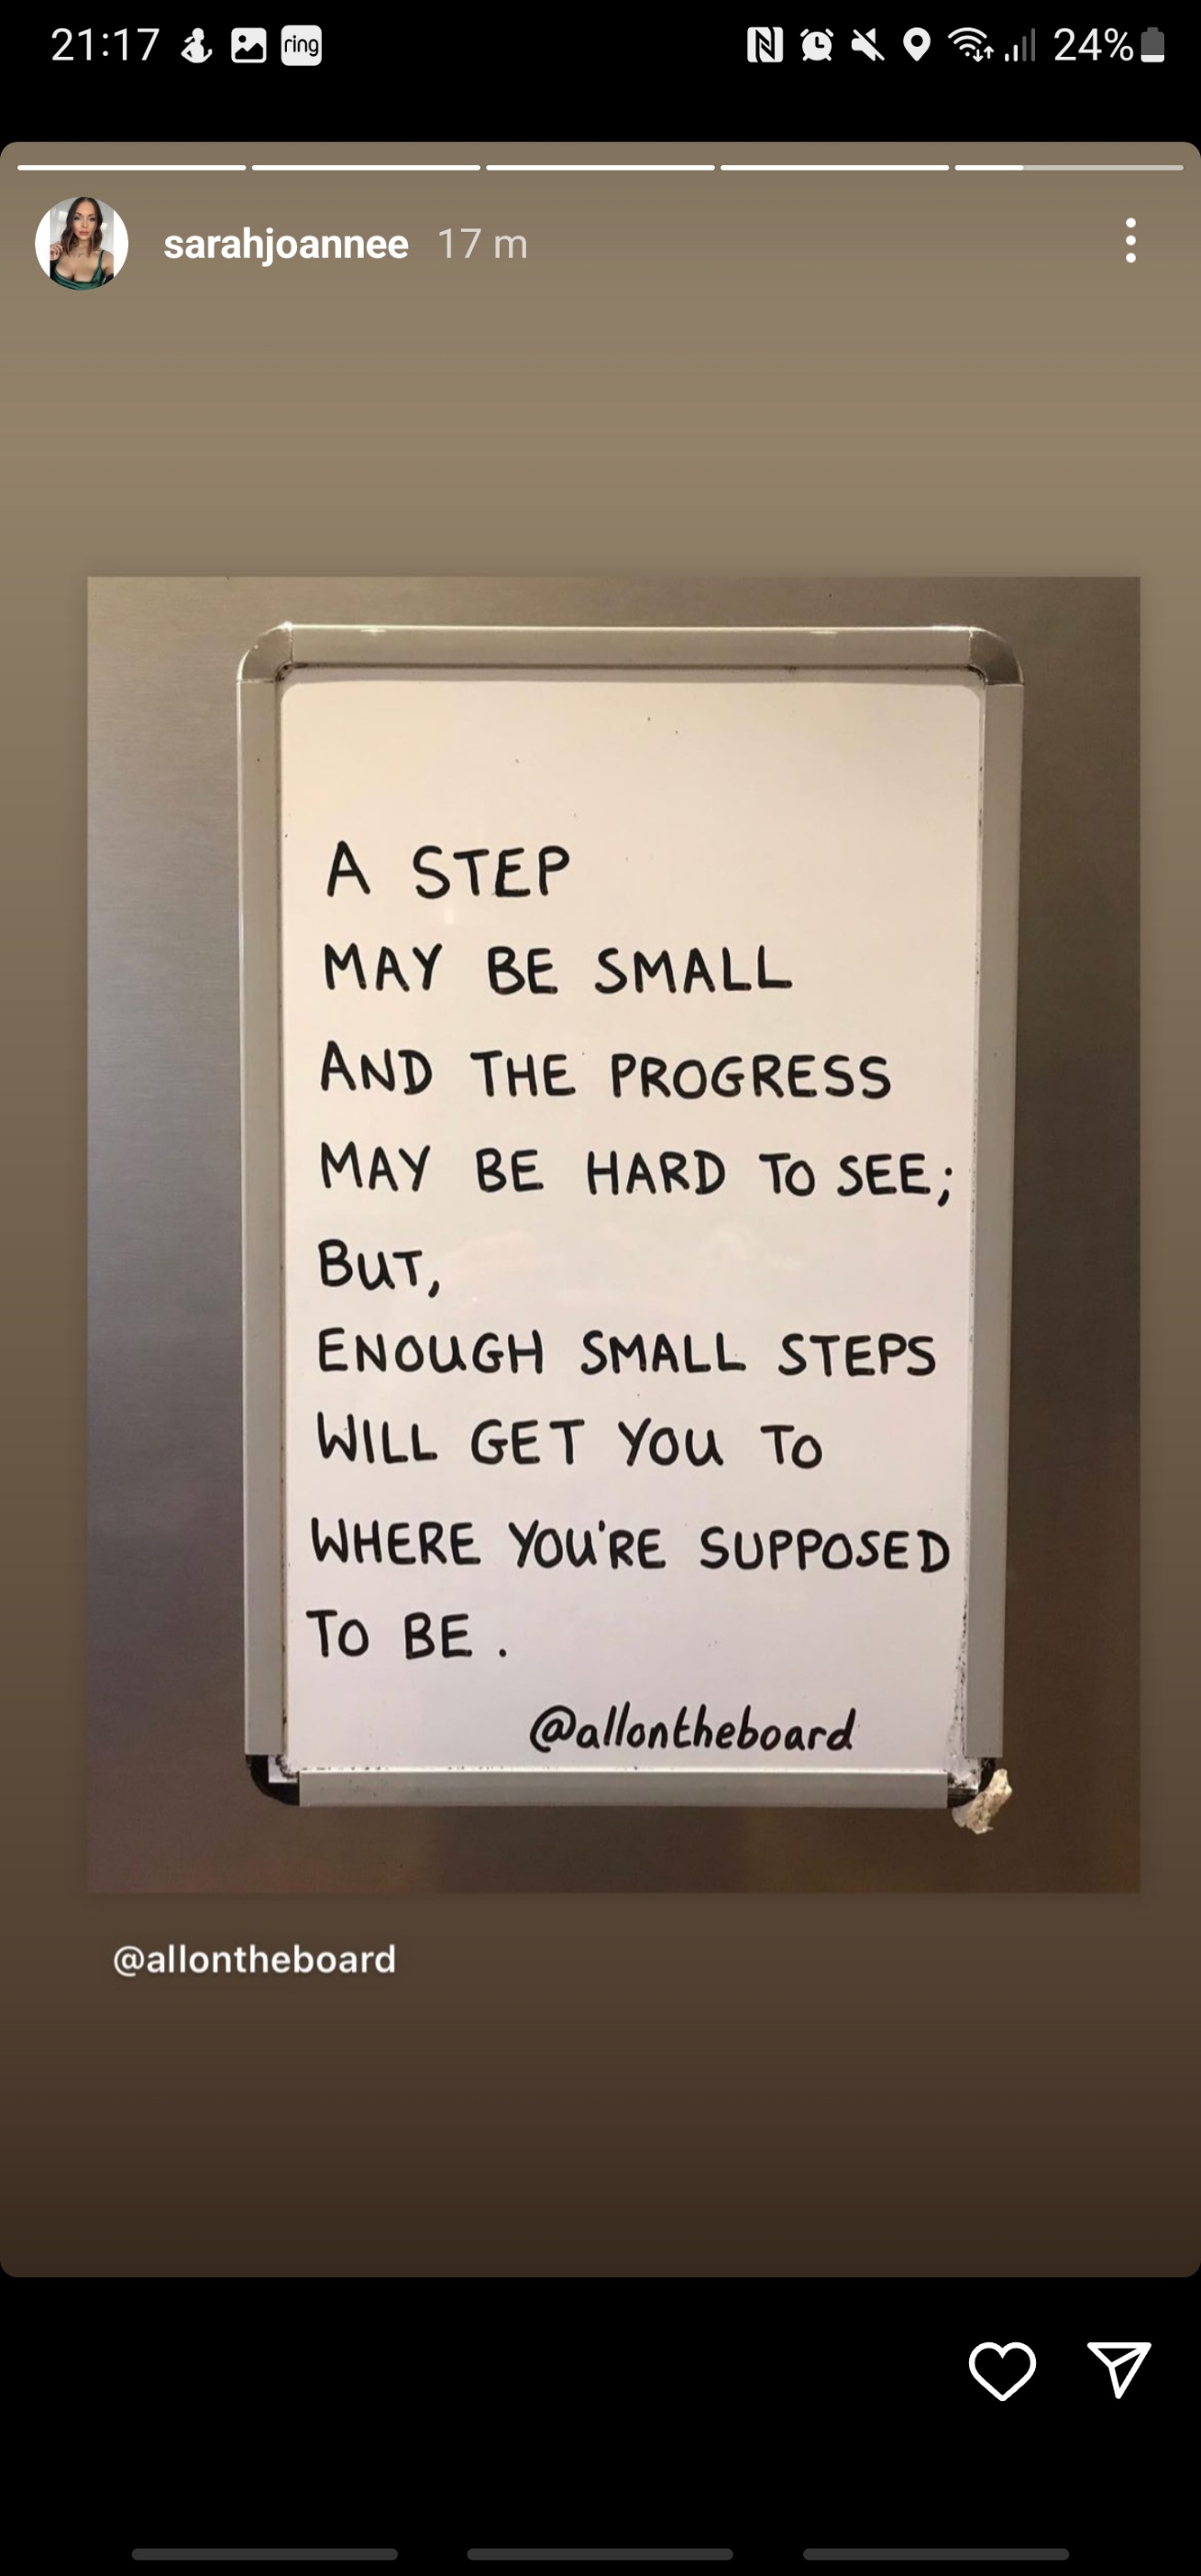 21:17
ring
24%
sarahjoannee 17 m
A STEP
MAY BE SMALL
AND THE PROGRESS
MAY BE HARD TO SEE;
BUT,
ENOUGH SMALL STEPS
WILL GET YOU TO
WHERE YOU'RE SUPPOSED
TO BE.
@allontheboard
@allontheboard